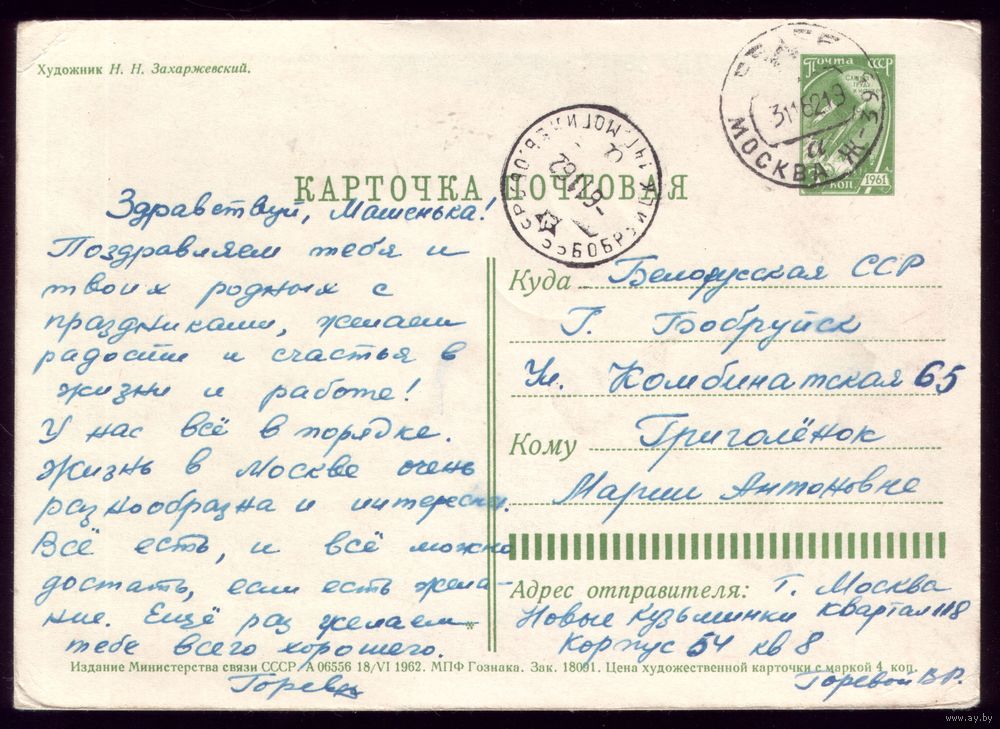 Художник Н. Н. Захаржевский.
Почта СССР
МОСКВА Ж-
КОП 1961
КАРТОЧКА ПОЧТОВАЯ
Здравствуй, Машенька!
Поздравляем тебя и
твоих родных с
праздниками, желаем
радости и счастья в
жизни и работе!
У нас всё в порядке.
Жизнь в Москве очень
разнообразна и интересна.
Всё есть, и всё можно
достать, если есть жела-
ние. Ещё раз желаем
тебе всего хорошего.
Куда Белорусская ССР
Г. Бобруйск
Ул. Комбинатская 65
Кому Григолёнок
Марии Антоновне
Адрес отправителя: Г. Москва
Новые Кузьминки квартал 118
Корпус 54 кв 8
Издание Министерства связи СССР. А 06556 18/VI 1962. МПФ Гознака. Зак. 18091. Цена художественной карточки с маркой 4 коп.
Горевой В.Р.
www.ay.by